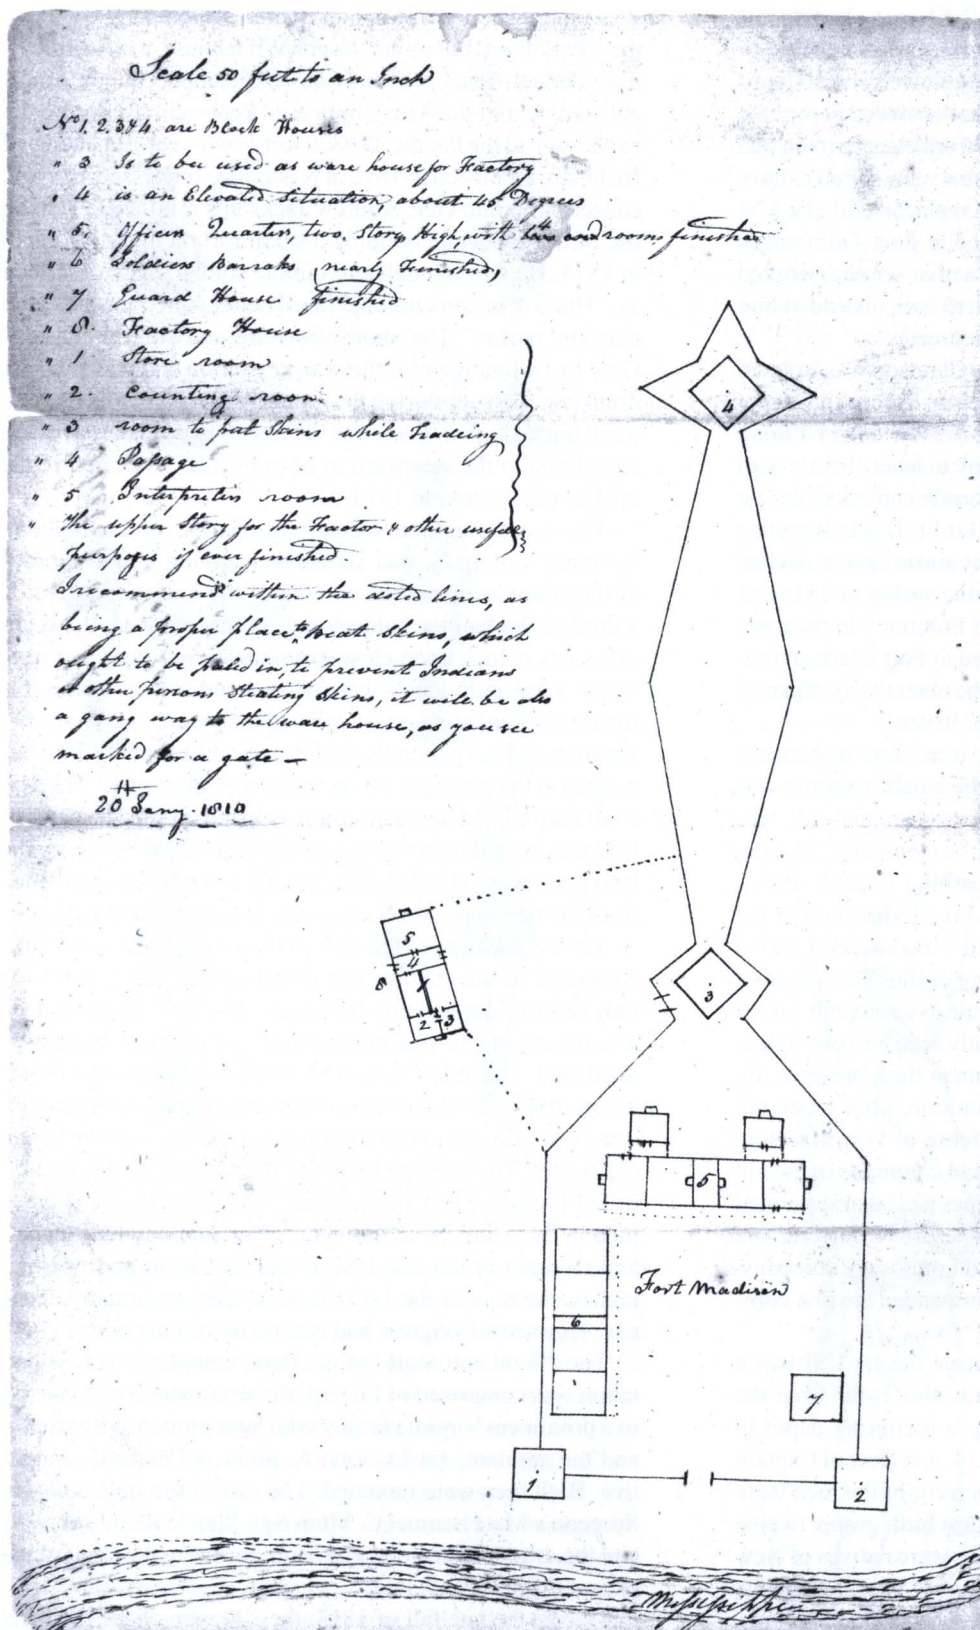 Scale 50 feet to an Inch
No 1. 2. 3 & 4. are Block Houses
" 3 Is to be used as ware house for Factory
" 4 is an Elevated Situation, about 45 Degrees
" 5. officers Quarters, two Story High, with and rooms finished
" 6 Soldiers Barraks, nearly Finished,
" 7 Guard House finished
" 8. Factory House
" 1. Store room
" 2. Counting room
" 3 room to put Skins while Tradeing
" 4 Passage
" 5 Interpreters room
" The upper Story for the Factor & other usefull
purposes if ever finished.
I recommend within the doted lines, as
being a proper place to Beat Skins, which
ought to be paled in, to prevent Indians
or other persons Stealing Skins, it will be also
a gang way to the ware house, as you see
marked for a gate —
20th Jany. 1810
4
5
4
8
1
2
3
3
5
Fort Madison
6
7
1
2
Mississippi